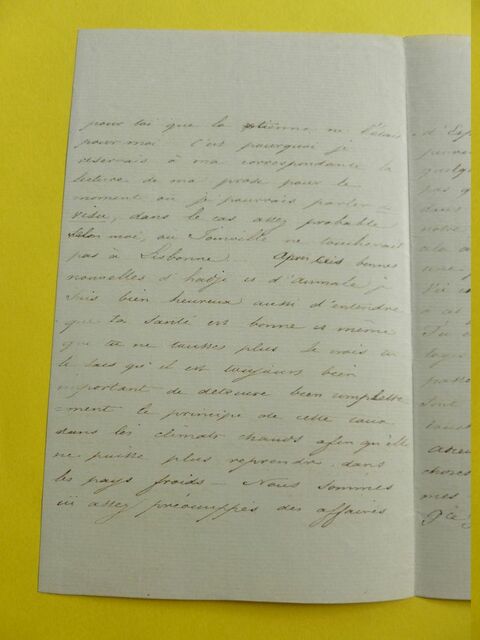 pour toi que la tienne ne l'était
pour moi. C'est pourquoi je
réservais à ma correspondance la
lecture de ma prose pour le
moment où je pourrais parler de
visu, dans le cas assez probable
selon moi, où Joinville ne toucherait
pas à Lisbonne. Après les bonnes
nouvelles d'hadje et d'Aumale j
suis bien heureux aussi d'entendre
que ta santé est bonne et même
que tu ne tousses plus. Je crois
le sais qu'il est toujours bien
important de détruire bien complètte
=ment le principe de cette toux
dans les climats chauds afin qu'elle
ne puisse plus reprendre dans
les pays froids – Nous sommes
ici assez préoccupés des affaires
d'Esp
quelque
pas q
dans
notre
à la
une
à ce
Tu
pass
sont
choses
mes